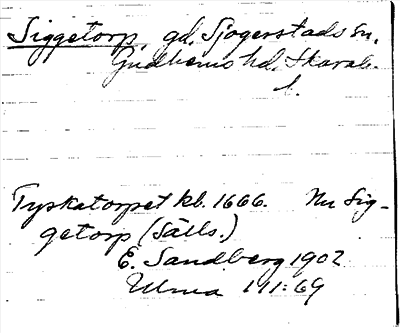 Siggetorp, gd, Sjogerstads sn,
Gudhems hd, Skarab.
l.
Tyskatorpet kb. 1666. Nu Sig-
getorp (Sälls.)
E. Sandberg 1902
Ulma 111:69